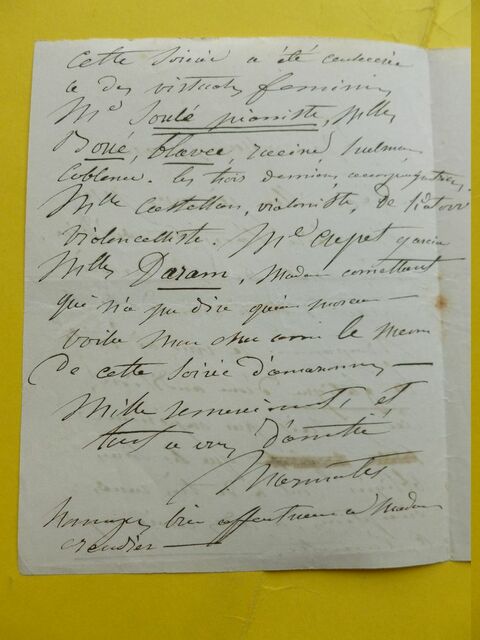 Cette soirée a été consacrée
a des virtuoses féminins
Me Soulé pianiste, Milles
Boué, blavee, racine, hulman
Coblence. les trois dernières accompagnatrices,
Mlle Castellan, violoniste, De
violoncelliste. Me crepet garcia
Milles Daram, Madam comettant
qui n'a pu dire qu'un morceau —
voila mon cher ami le menu
De cette Soirée d'amazones —
Mille remerciments et
tout a vous d'amitié
Marmontel
hommages bien affectueux a Madame